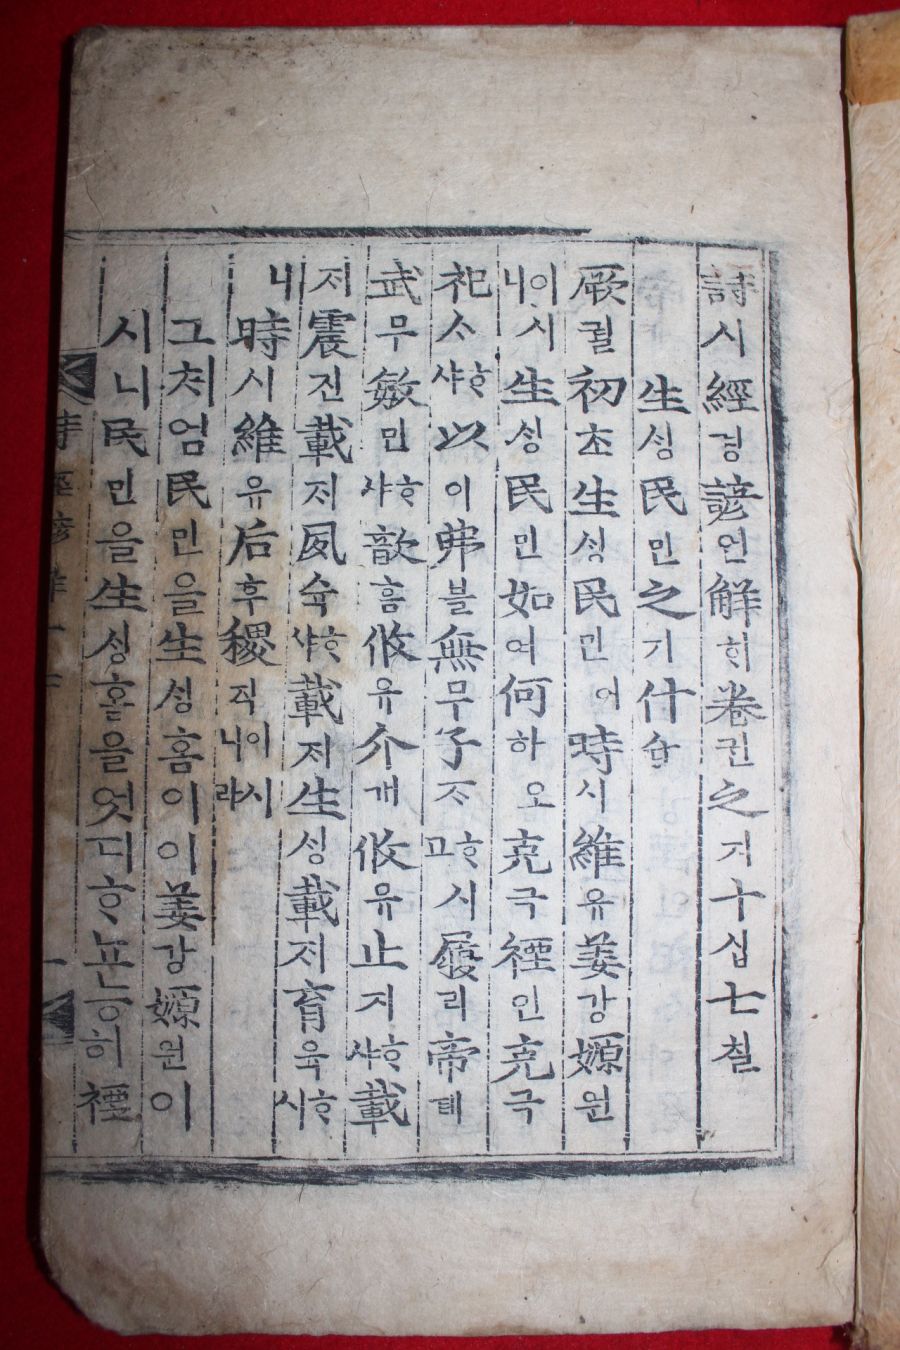 詩시經경諺언解ᄒᆡ卷권之지十십七칠
生ᄉᆡᆼ民민之지什십
厥궐初초生ᄉᆡᆼ民민이時시維유姜강嫄원
이시니生ᄉᆡᆼ民민如여何하오克극禋인克극
祀ᄉᆞᄒᆞ샤以이弗불無무子ᄌᆞᄒᆞ시고履리帝뎨
武무敏민ᄒᆞ샤歆흠攸유介개攸유止지ᄒᆞ샤載
ᄌᆡ震진載ᄌᆡ夙슉ᄒᆞ샤載ᄌᆡ生ᄉᆡᆼ載ᄌᆡ育육ᄒᆞ시
니時시維유后후稷직이시니라
그처엄民민을生ᄉᆡᆼ홈이이姜강嫄원이
시니民민을生ᄉᆡᆼ홈을엇디ᄒᆞ뇨능히禋